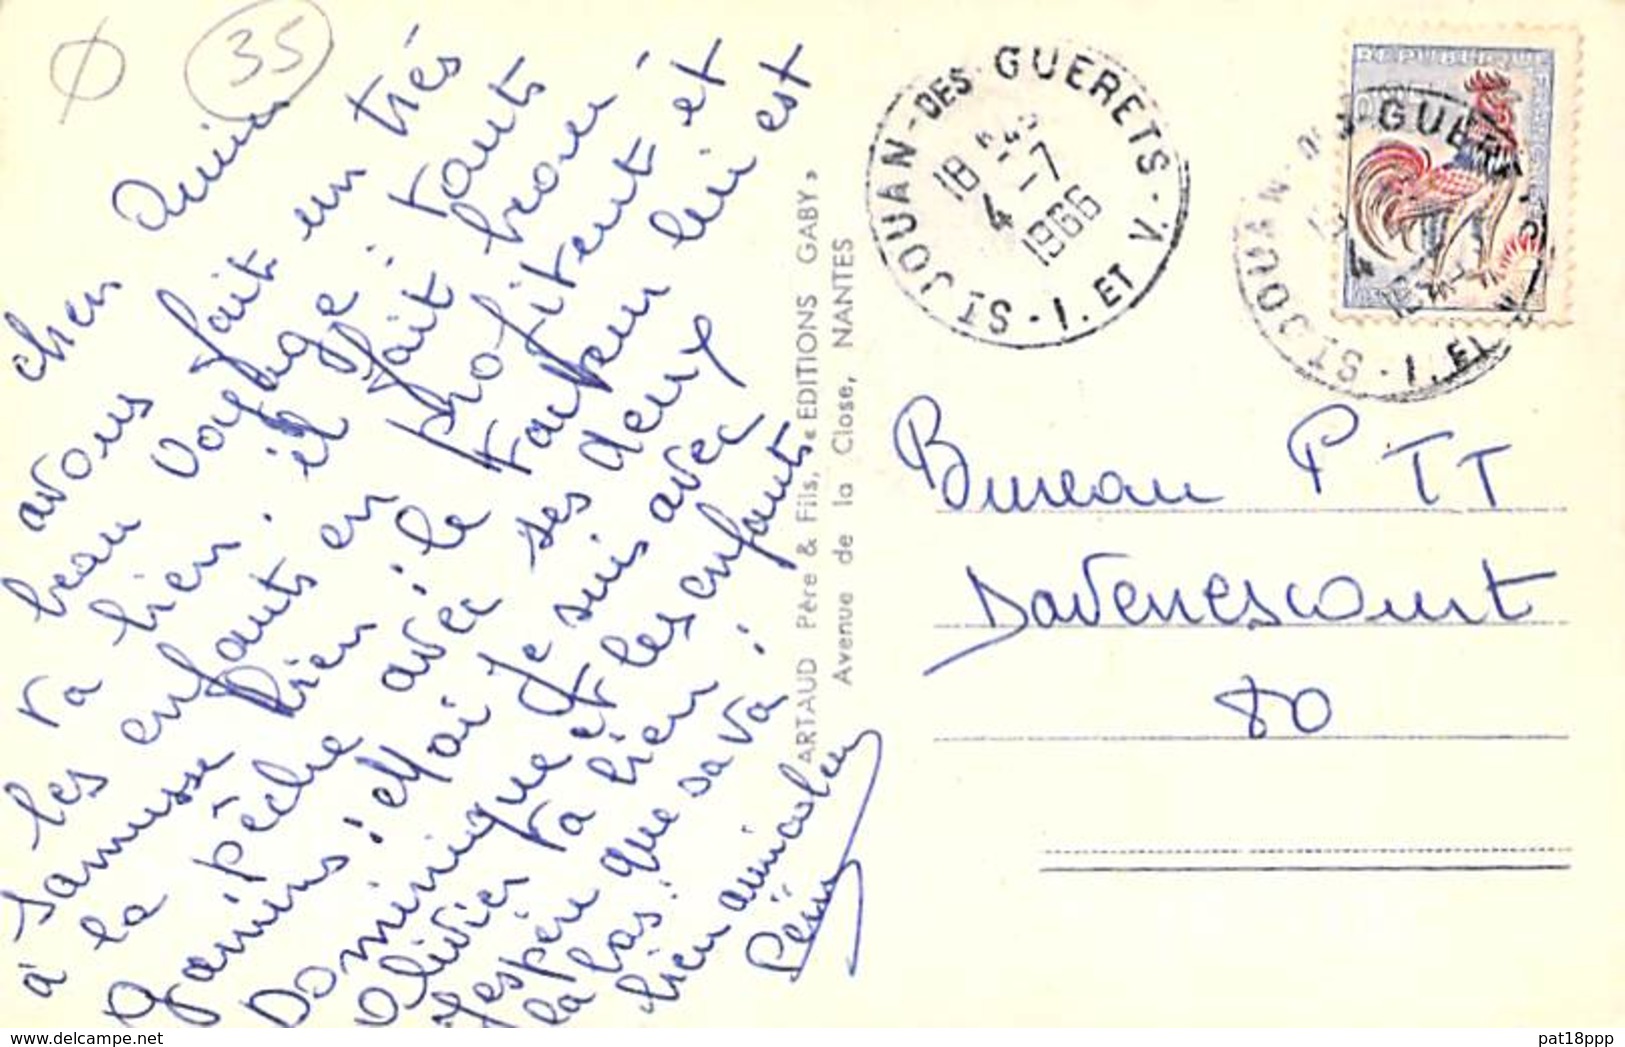 35
chers amies
avons fait un très
beau voyage : touts
va bien. il fait beau
les enfants en profitent et
samusse bien : le facteur lui est
à la pêche avec ses deux
gamins : Moi je suis avec
Dominique et les enfants
Olivier va bien :
J'espère que sava
la bas :
bien amicalem
ARTAUD Père & Fils, « EDITIONS GABY »
Avenue de la Close, NANTES
ST JOUAN-DES-GUERETS
18
4 - 7
1966
I. ET V.
REPUBLIQUE
ST JOUAN-DES-GUER
I. ET
Bureau PTT
Davenescourt
80
pat18ppp